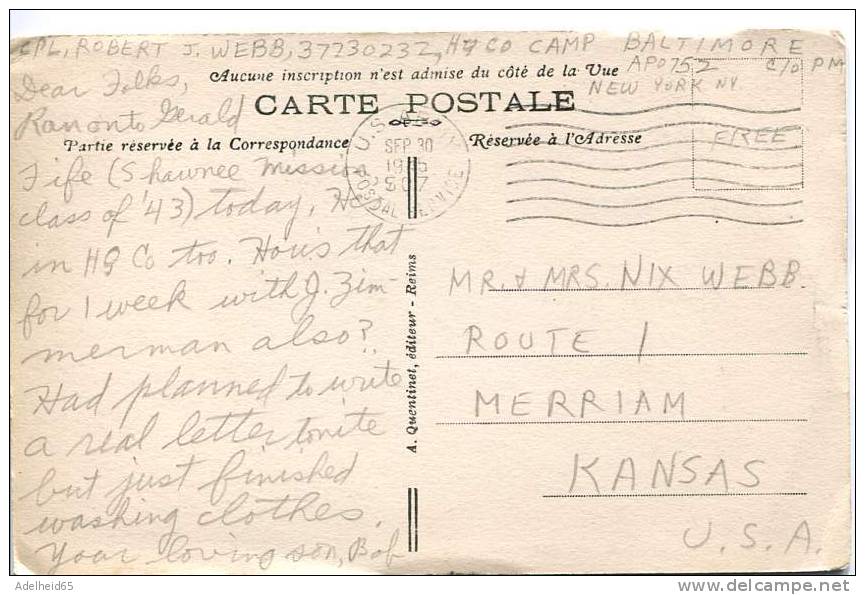 CPL, ROBERT J. WEBB, 37730232, HQ CO CAMP BALTIMORE
APO 752 C/O PM
NEW YORK NY
FREE
Aucune inscription n'est admise du côté de la Vue
CARTE POSTALE
Partie réservée à la Correspondance
Réservée à l'Adresse
U.S. ARMY
SEP 30
1945
507
POSTAL SERVICE
Dear Folks,
Ran onto Gerald
Fife (Shawnee Mission
class of '43) today, He
in HQ Co too. How's that
for 1 week with J. Zim-
merman also?
Had planned to write
a real letter tonite
but just finished
washing clothes.
Your loving son, Bob
A. Quentinet, éditeur - Reims
MR. & MRS. NIX WEBB.
ROUTE 1
MERRIAM
KANSAS
U.S.A.
Adelheid65
www.delcampe.net